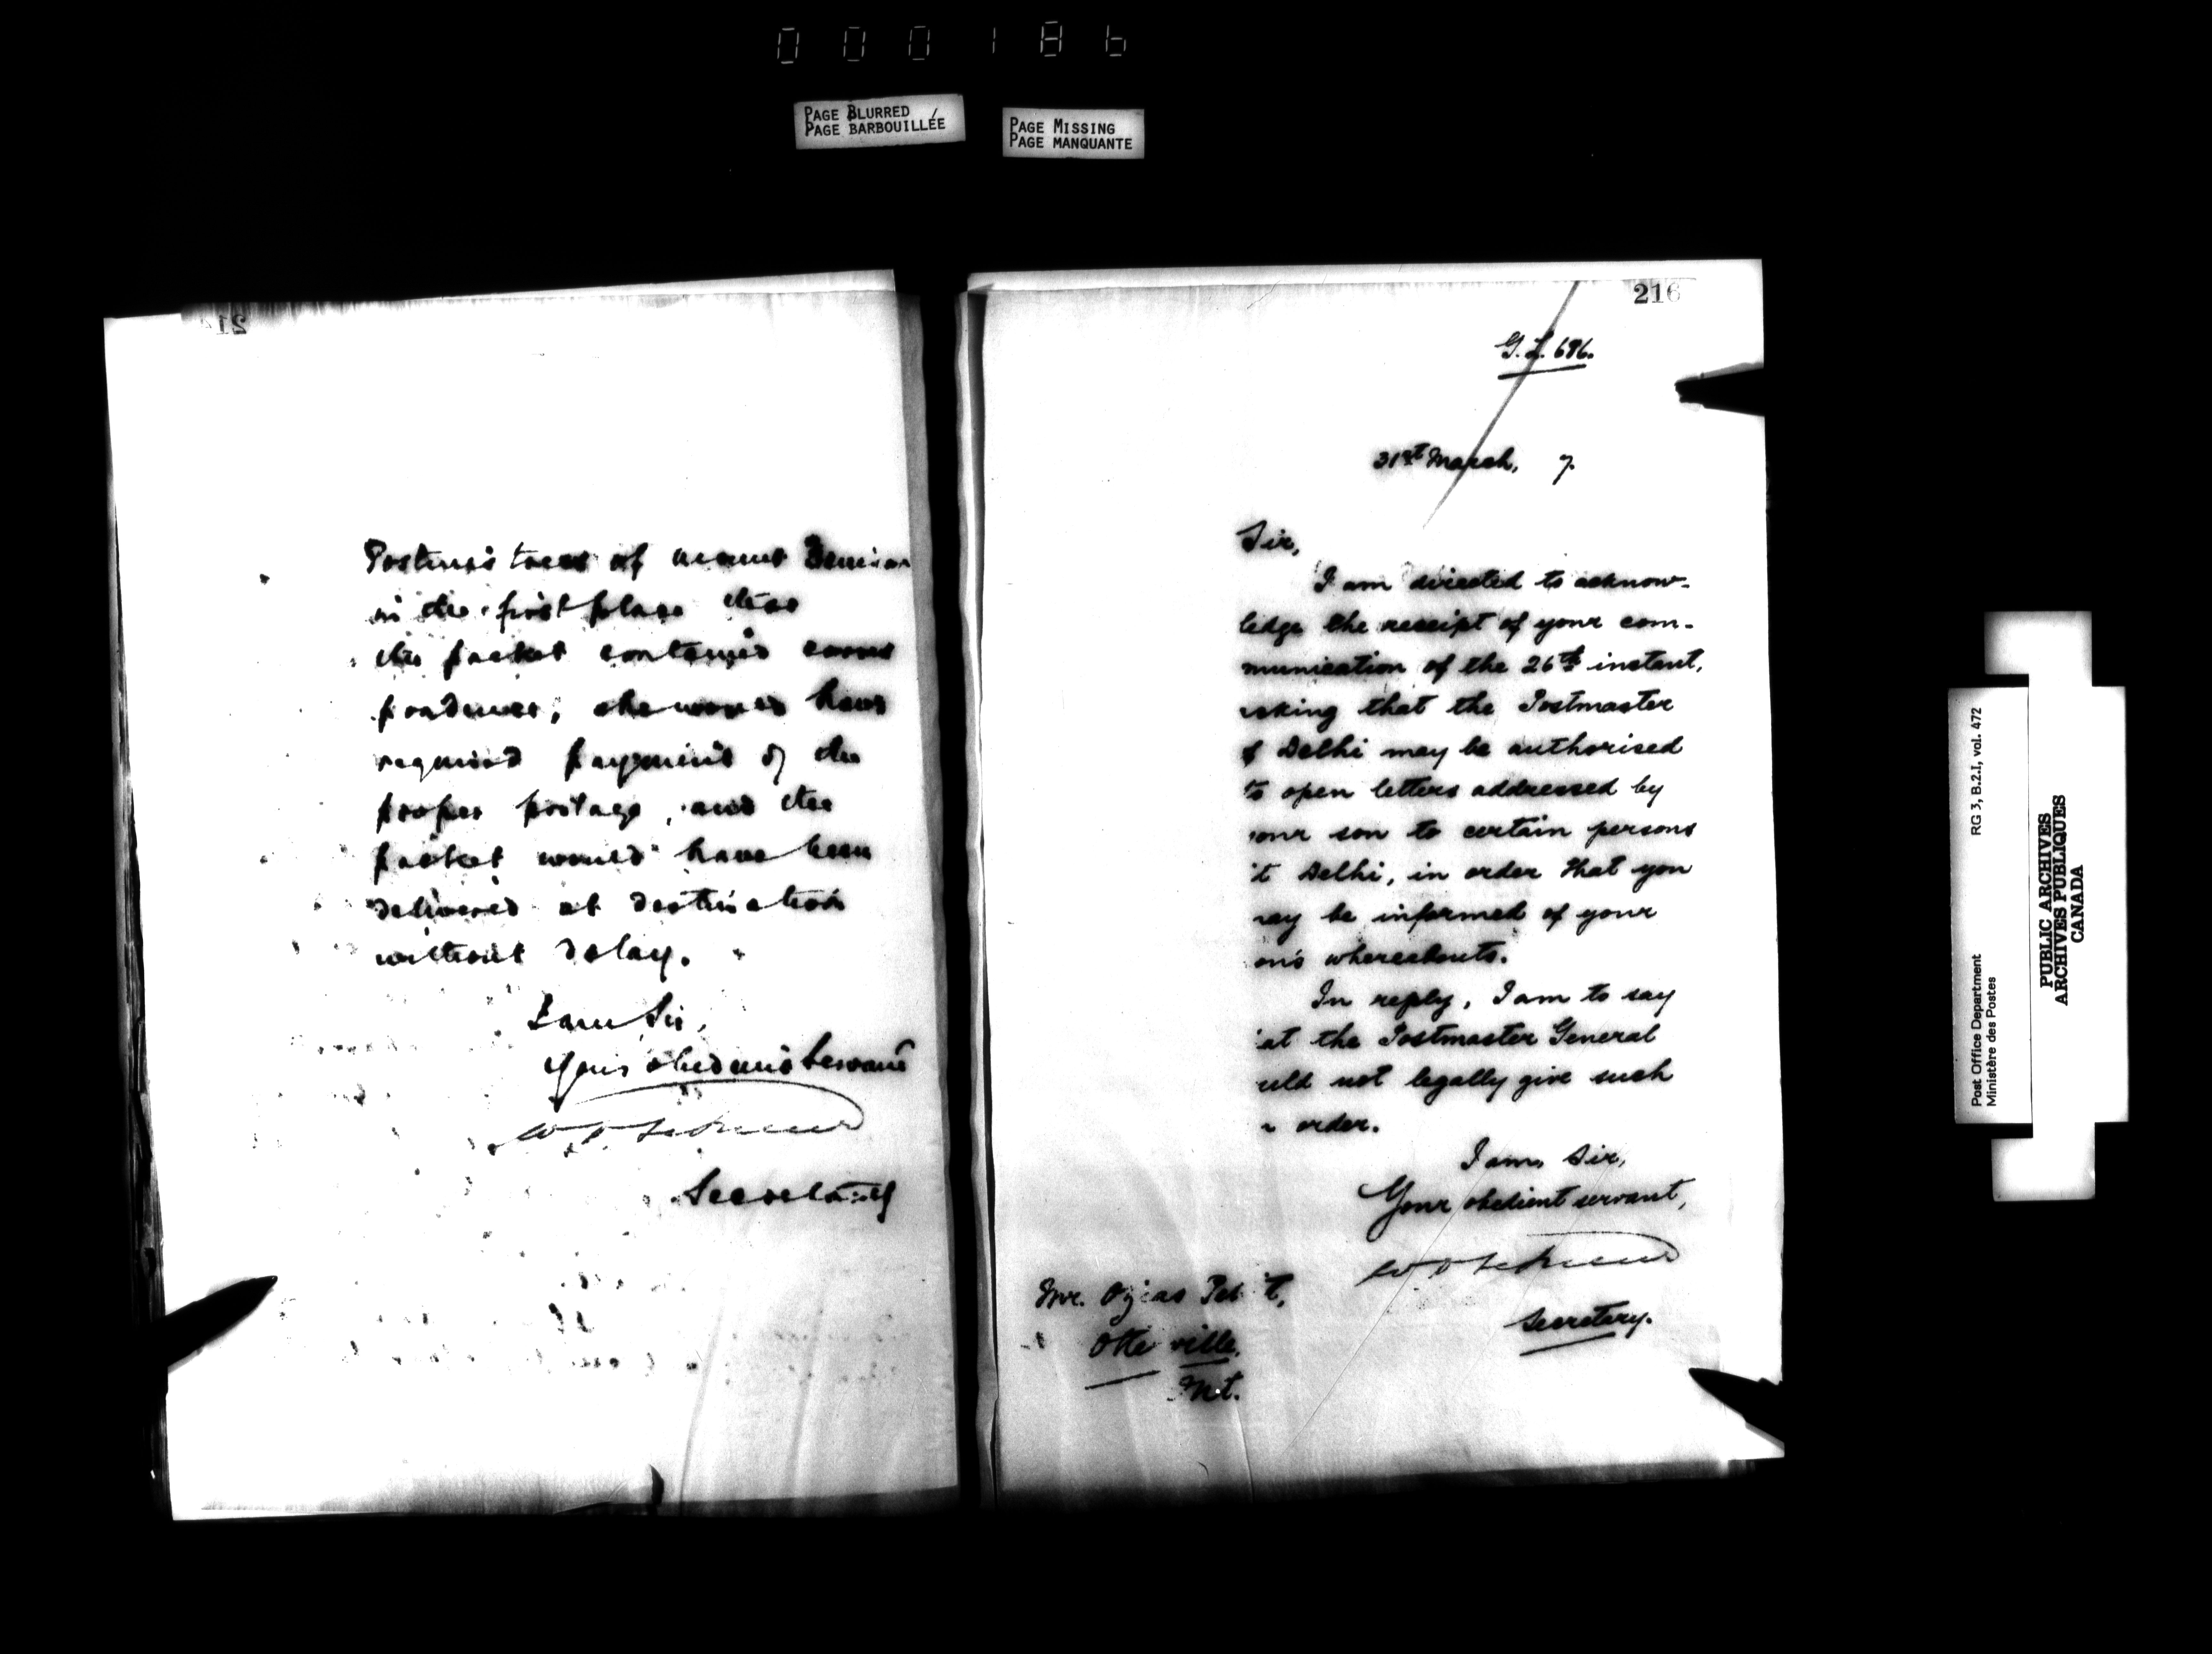 000186
PAGE BLURRED
PAGE BARBOUILLÉE
PAGE MISSING
PAGE MANQUANTE
Postmistress of Mount
in the first place that
the packet contained corres
pondence, she would have
required payment of the
proper postage, and the
packet would have been
delivered at destination
without delay.
I am Sir,
Your obedient Servant
Secretary
216
G.L. 686.
31st March, 7.
Sir,
I am directed to acknow-
ledge the receipt of your com-
munication of the 26th instant,
asking that the Postmaster
of Delhi may be authorised
to open letters addressed by
your son to certain persons
at Delhi, in order that you
may be informed of your
son's whereabouts.
In reply, I am to say
that the Postmaster General
could not legally give such
an order.
I am, Sir,
Your obedient servant,
Secretary.
Mr. Ozias
Otterville,
Ont.
RG 3, B.2.I, vol. 472
Post Office Department
Ministère des Postes
PUBLIC ARCHIVES
ARCHIVES PUBLIQUES
CANADA